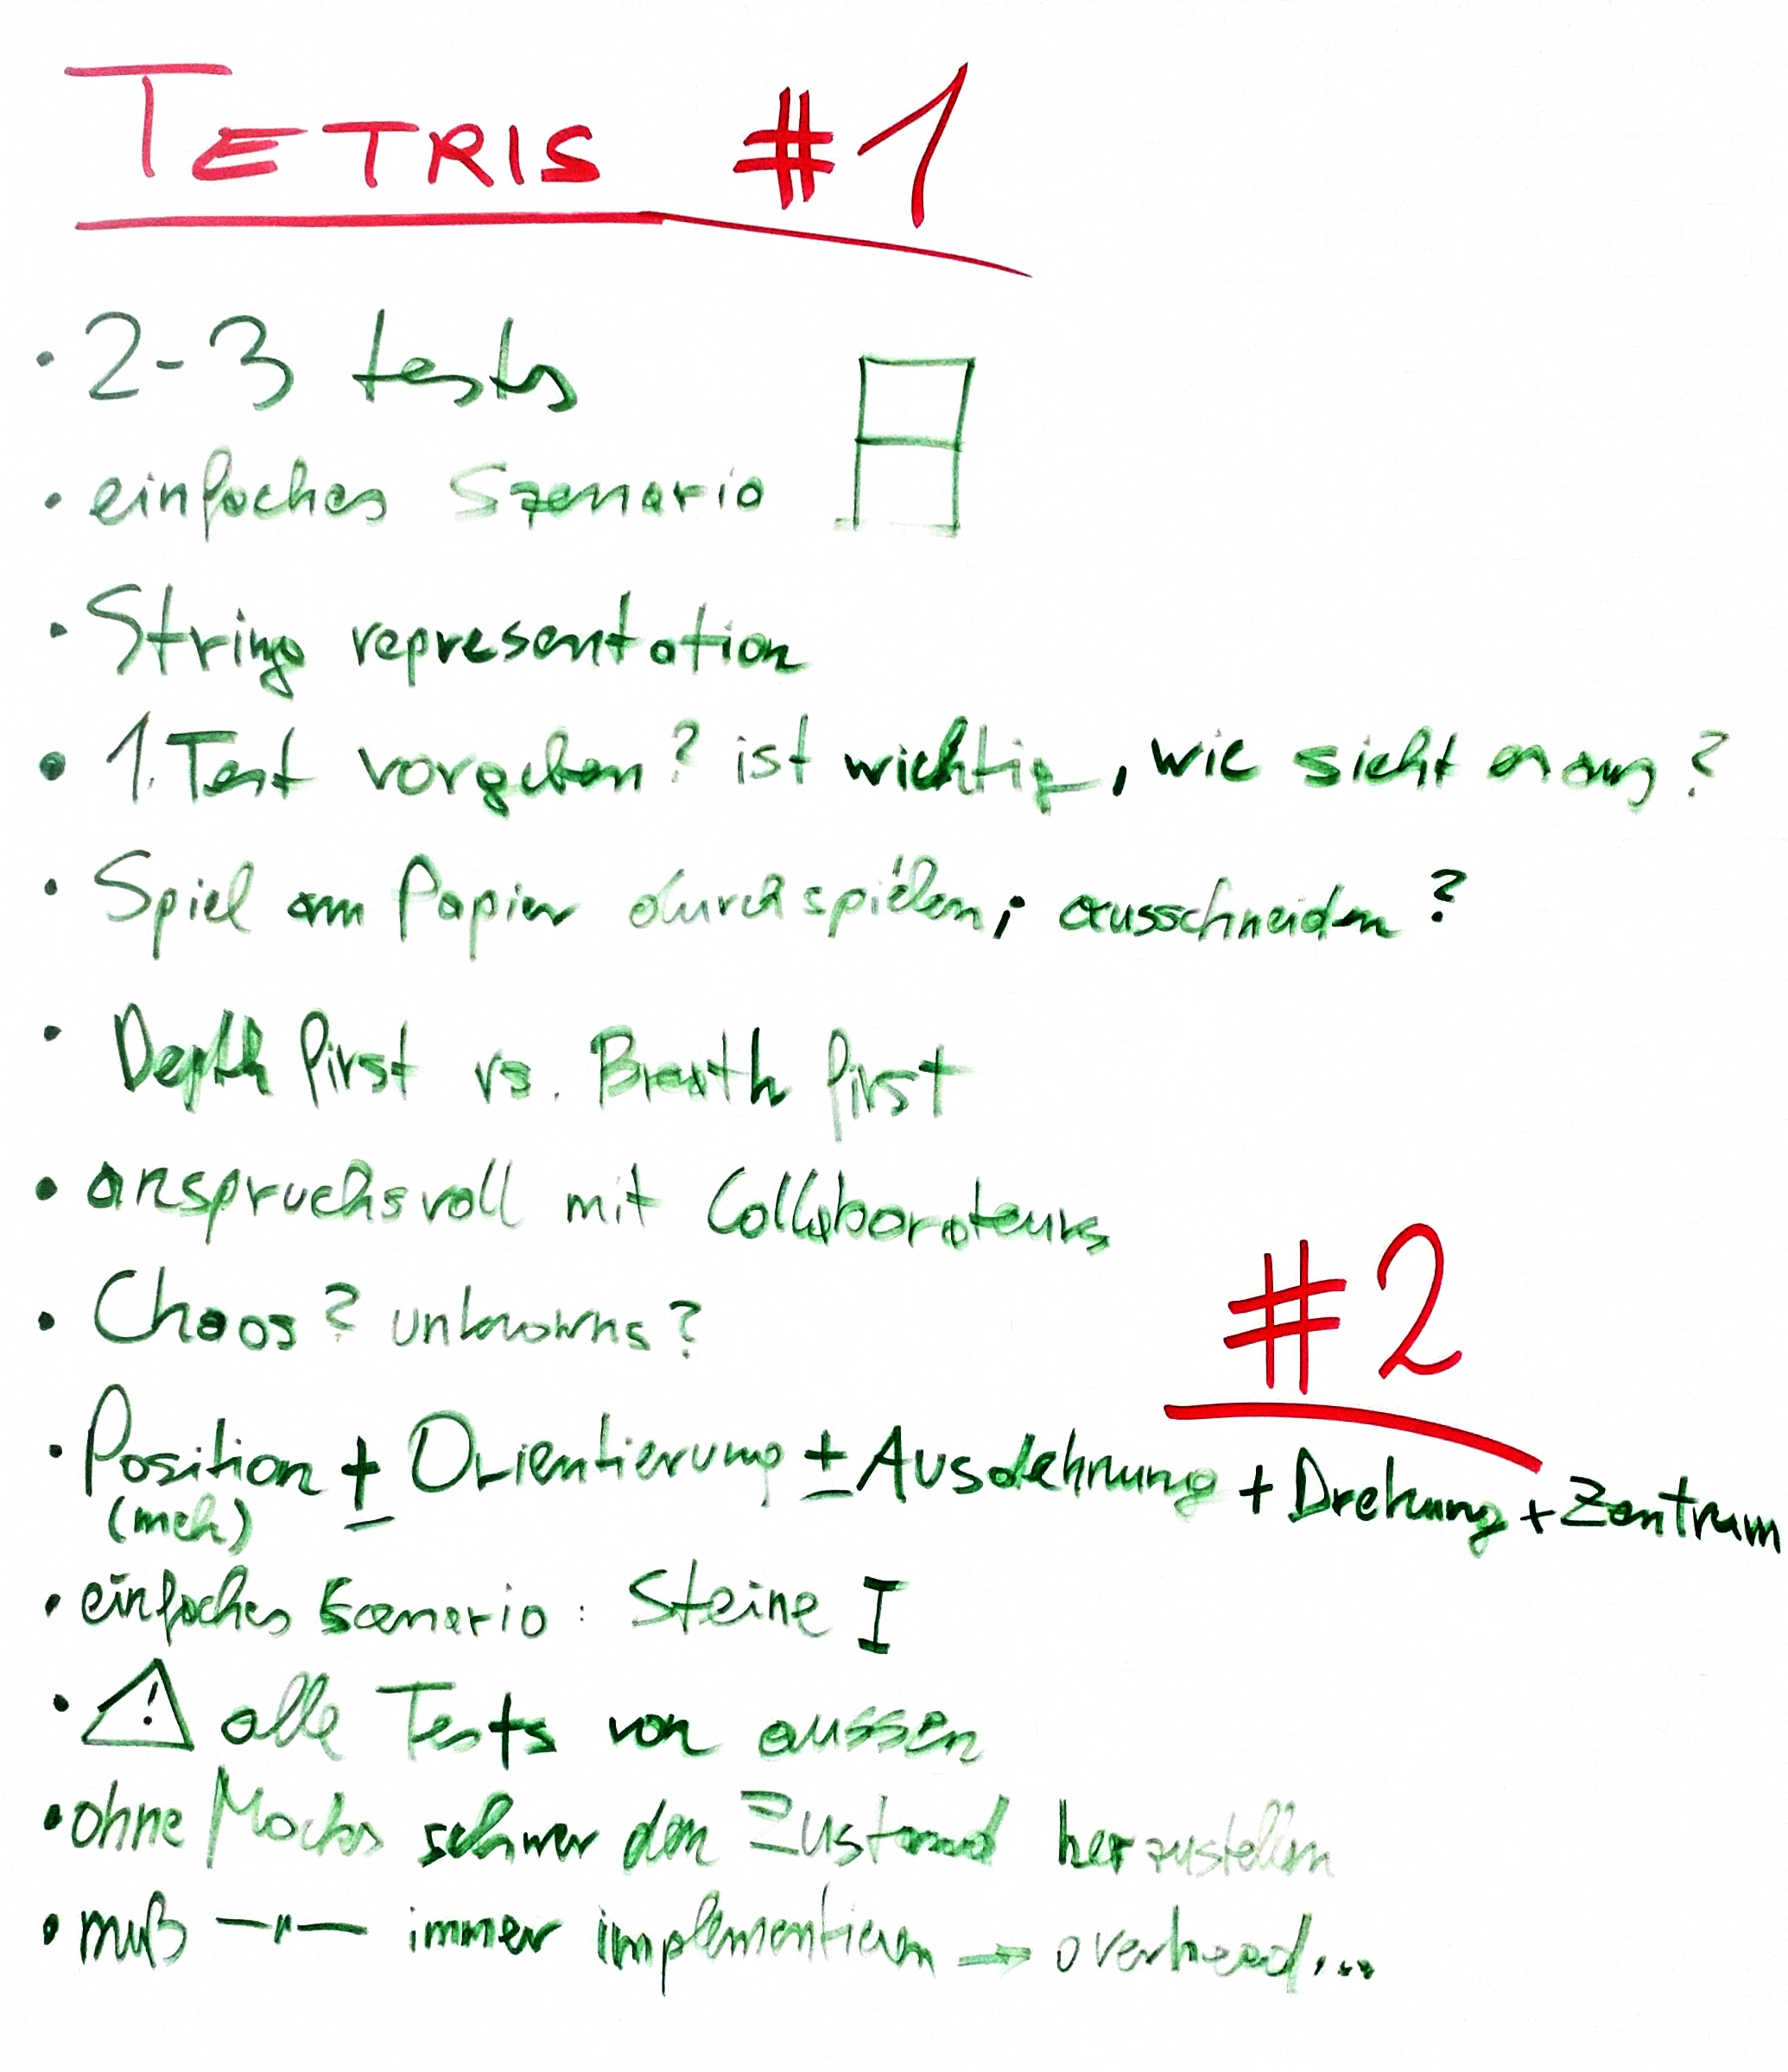 TETRIS #1
• 2-3 tests
• einfaches Szenario
• String representation
• 1. Test vorgeben? ist wichtig, wie sieht er aus?
• Spiel am Papier durchspielen; ausschneiden?
• Depth first vs. Breath first
• anspruchsvoll mit Collaborateurs
• Chaos? unknowns?
#2
• Position ± Orientierung ± Ausdehnung + Drehung + Zentrum
(meh)
• einfaches Scenario: Steine I
• ! alle Tests von aussen
• ohne Mocks schwer den Zustand herzustellen
• muß —"— immer implementieren → overhead...